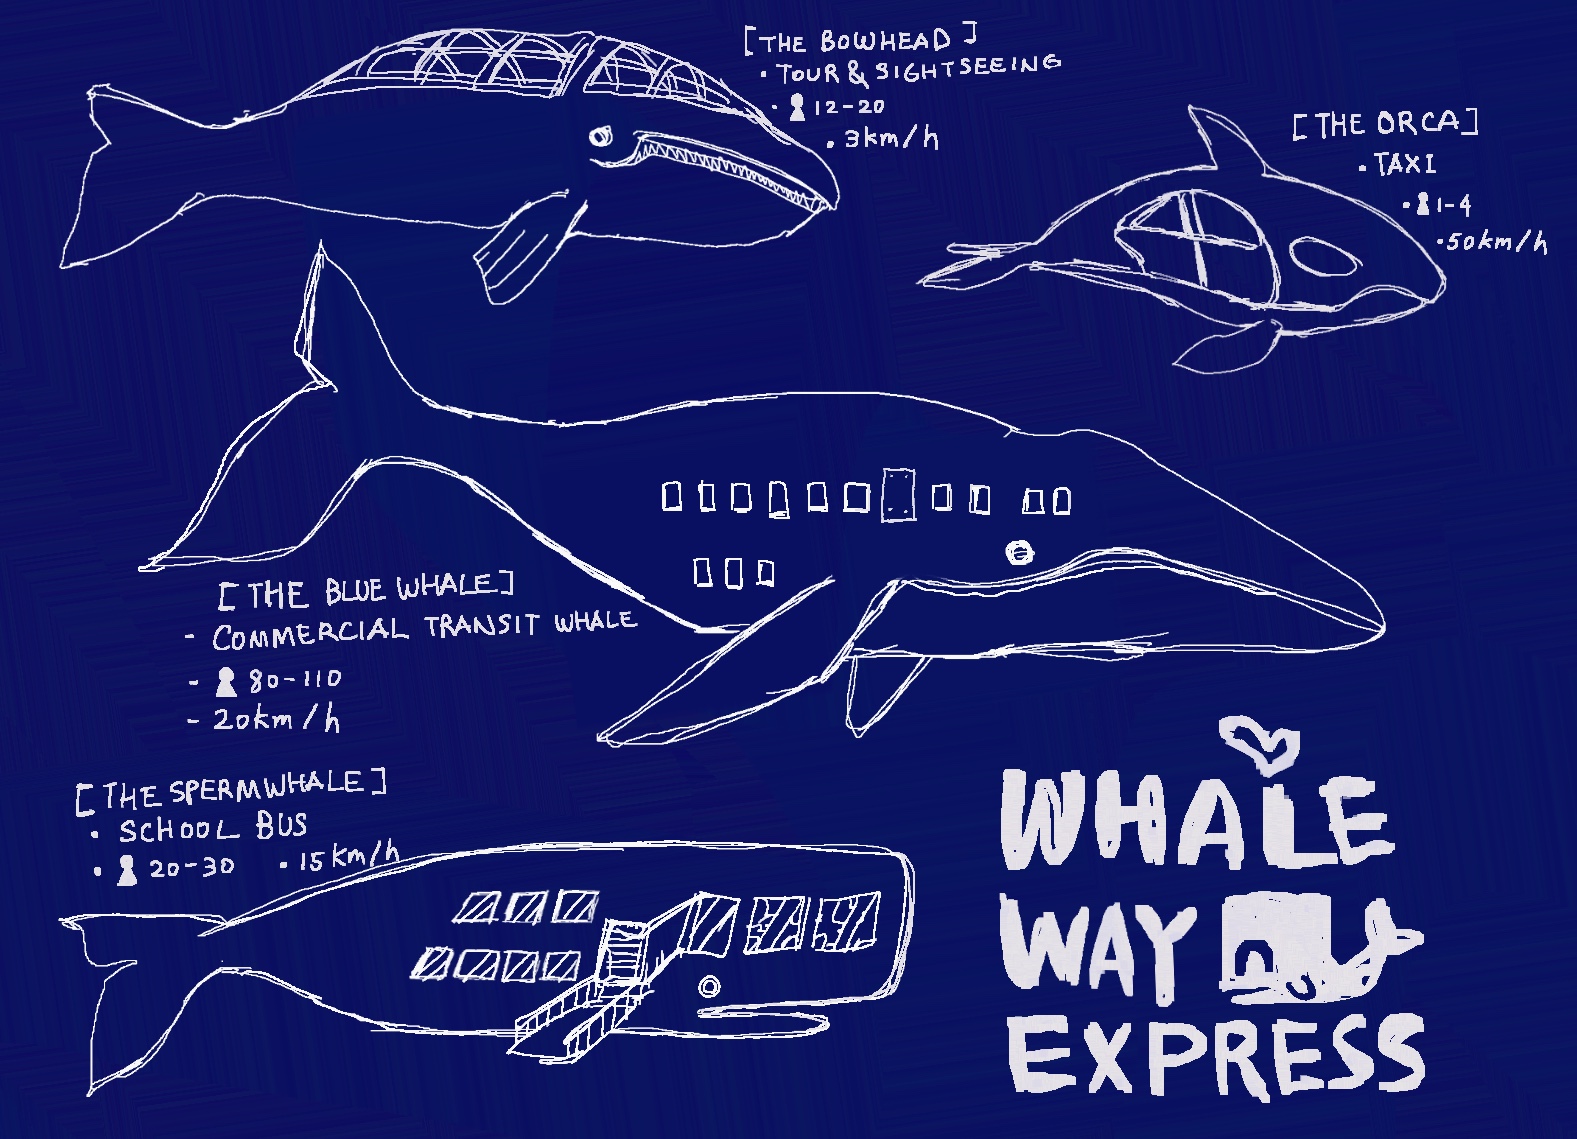 [THE BOWHEAD]
• TOUR & SIGHTSEEING
• 12-20
• 3km/h
[THE ORCA]
• TAXI
• 1-4
• 50km/h
[THE BLUE WHALE]
- COMMERCIAL TRANSIT WHALE
- 80-110
- 20km/h
[THE SPERMWHALE]
• SCHOOL BUS
• 20-30 • 15km/h
WHALE
WAY
EXPRESS